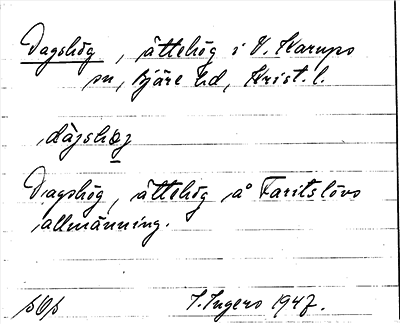 Dagshög, ättehög i V. Karups
sn, Bjäre hd, Krist. l.
dàgshøg
Dagshög, ättehög å Faritslövs
allmänning.
I. Ingers 1947.